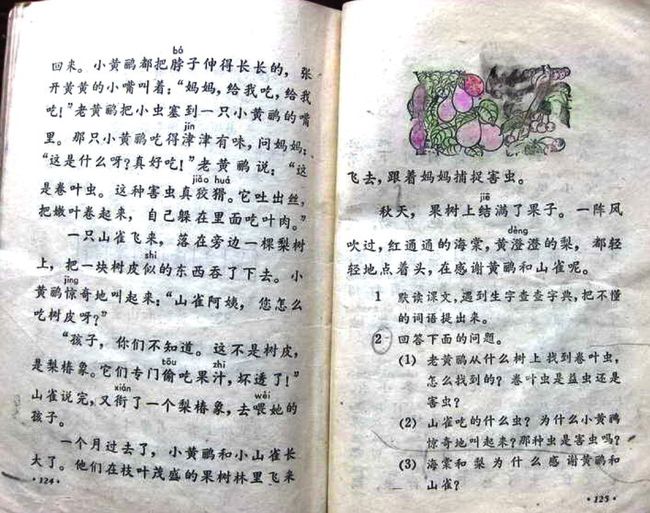 bó
回来。小黄鹂都把脖子伸得长长的，张
开黄黄的小嘴叫着：“妈妈，给我吃，给我
吃！”老黄鹂把小虫塞到一只小黄鹂的嘴
jīn
里。那只小黄鹂吃得津津有味，问妈妈：
“这是什么呀？真好吃！”老黄鹂说：“这
jiǎo huá
是卷叶虫。这种害虫真狡猾。它吐出丝，
把嫩叶卷起来，自己躲在里面吃叶肉。”
一只山雀飞来，落在旁边一棵梨树
shì
上，把一块树皮似的东西吞了下去。小
jīng
黄鹂惊奇地叫起来：“山雀阿姨，您怎么
吃树皮呀？”
“孩子，你们不知道。这不是树皮，
tōu zhī
是梨椿象。它们专门偷吃果汁，坏透了！”
xián wèi
山雀说完，又衔了一个梨椿象，去喂她的
孩子。
一个月过去了，小黄鹂和小山雀长
大了。他们在枝叶茂盛的果树林里飞来
·124·
飞去，跟着妈妈捕捉害虫。
jiē
秋天，果树上结满了果子。一阵风
dèng
吹过，红通通的海棠，黄澄澄的梨，都轻
轻地点着头，在感谢黄鹂和山雀呢。
1 默读课文，遇到生字查查字典，把不懂
的词语提出来。
2 回答下面的问题。
(1) 老黄鹂从什么树上找到卷叶虫，
怎么找到的？卷叶虫是益虫还是
害虫？
(2) 山雀吃的什么虫？为什么小黄鹂
惊奇地叫起来？那种虫是害虫吗？
(3) 海棠和梨为什么感谢黄鹂和
山雀？
·125·